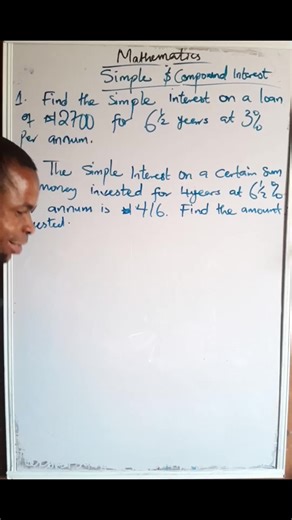 Mathematics
Simple & Compound Interest
1. Find the Simple interest on a loan
of ₦12700 for 6½ years at 3%
Per annum.
The Simple Interest on a certain Sum
money invested for 4years at 6½%
annum is ₦416. Find the amount